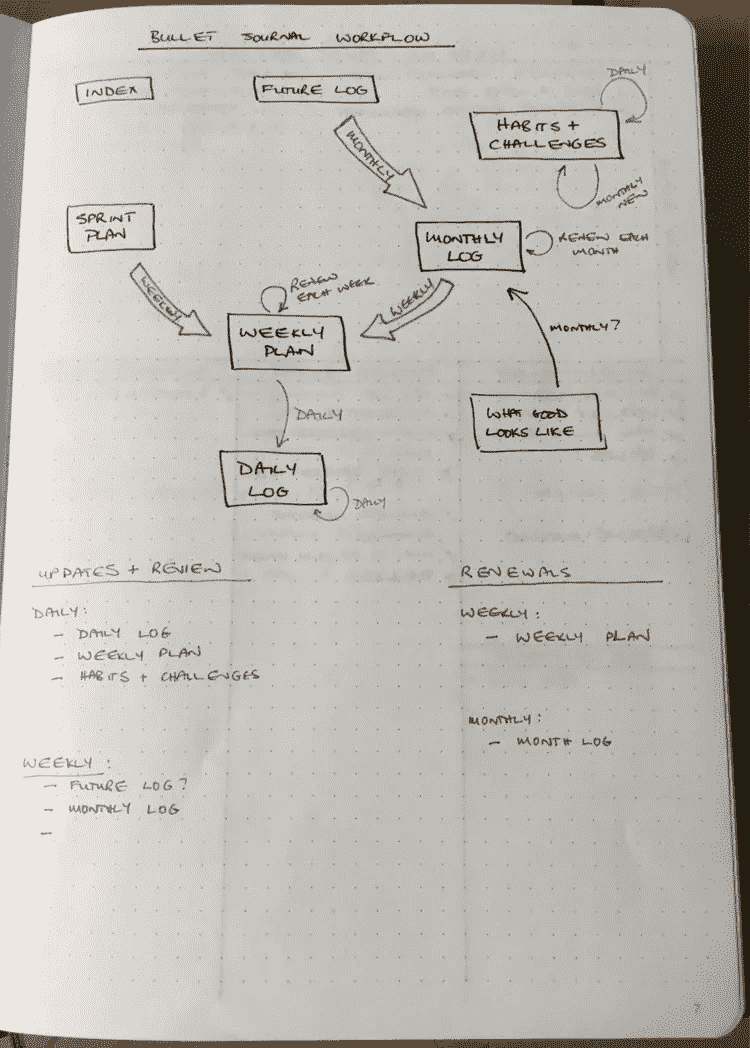 BULLET JOURNAL WORKFLOW
INDEX
FUTURE LOG
DAILY
HABITS +
CHALLENGES
MONTHLY
MONTHLY
NEW
SPRINT
PLAN
MONTHLY
LOG
RENEW EACH
MONTH
WEEKLY
RENEW
EACH WEEK
WEEKLY
WEEKLY
PLAN
MONTHLY?
DAILY
WHAT GOOD
LOOKS LIKE
DAILY
LOG
DAILY
UPDATES + REVIEW
DAILY:
- DAILY LOG
- WEEKLY PLAN
- HABITS + CHALLENGES
WEEKLY:
- FUTURE LOG?
- MONTHLY LOG
-
RENEWALS
WEEKLY:
- WEEKLY PLAN
MONTHLY:
- MONTH LOG
7